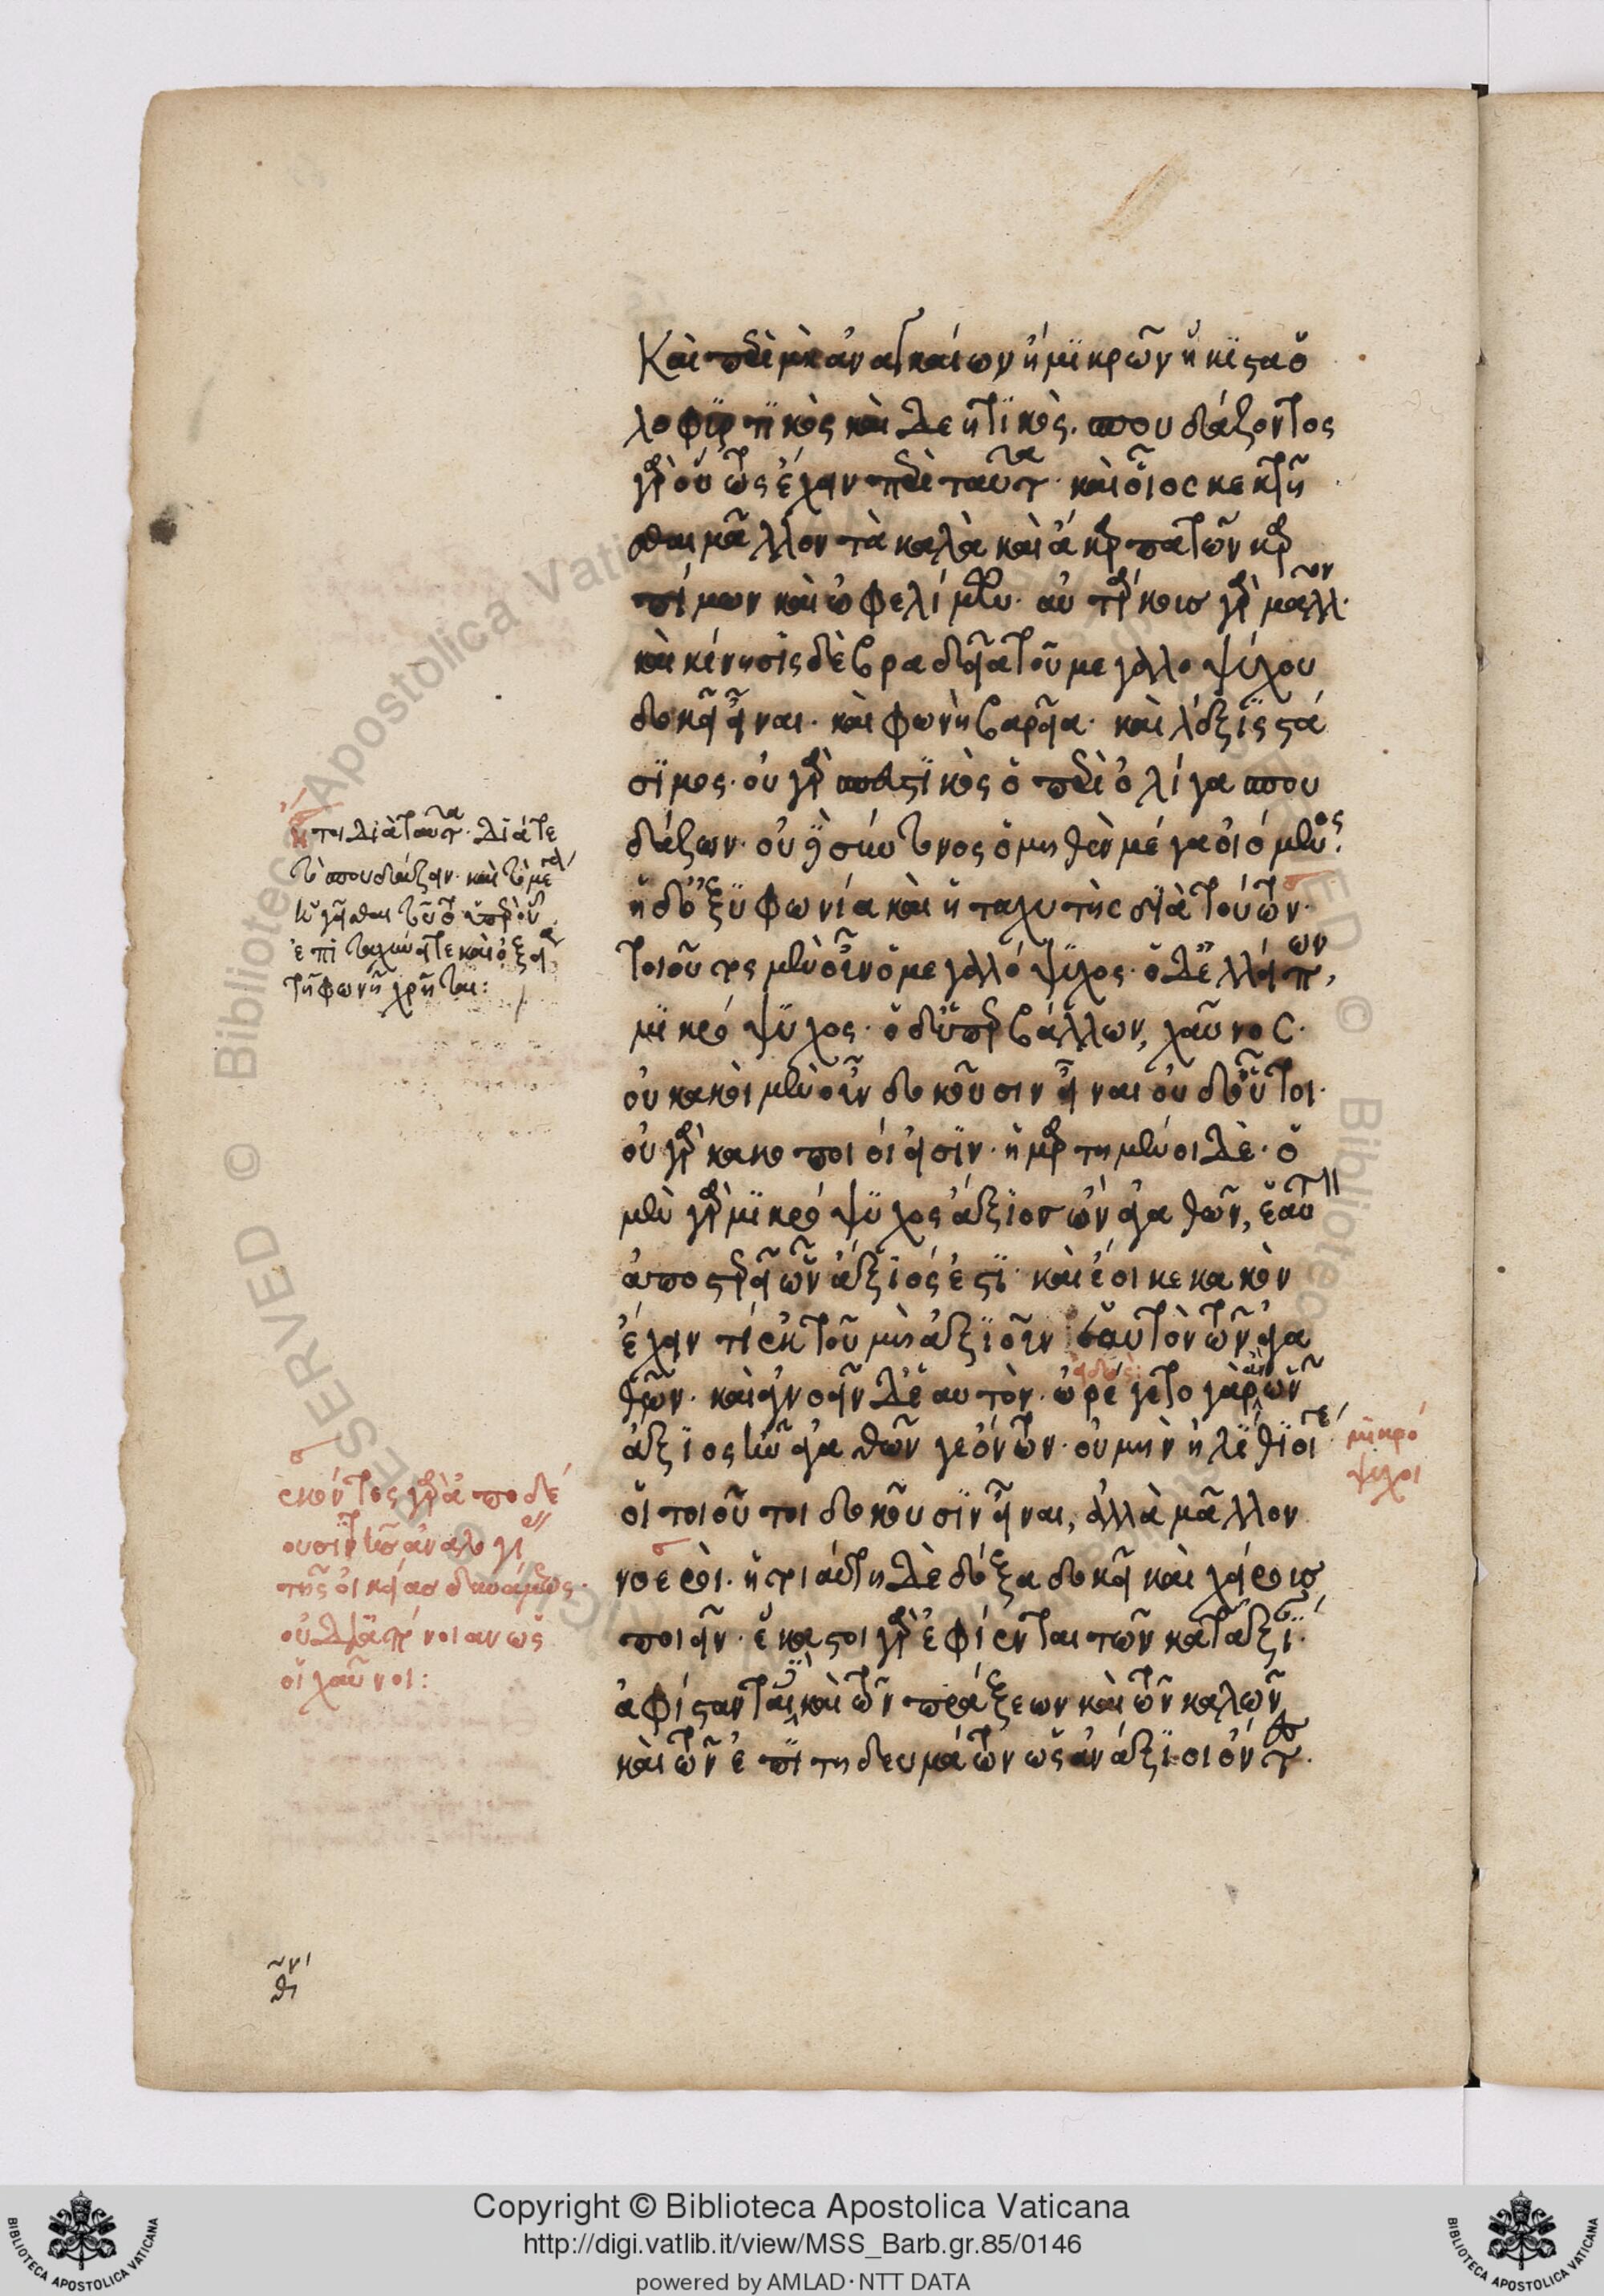 Καὶ περὶ μὲν ἀναγκαίων ἢ μικρῶν ἥκιστα ὀ
λοφυρτικὸς καὶ δεητικὸς. σπουδάζοντος
γὰρ οὕτως ἔχειν περὶ ταῦτα. καὶ οἷος κεκτῆ
σθαι μᾶλλον τὰ καλὰ καὶ ἄκαρπα τῶν καρ
πίμων καὶ ὠφελίμων. αὐτάρκους γὰρ μᾶλλον.
καὶ κίνησις δὲ βραδεῖα τοῦ μεγαλοψύχου
δοκεῖ εἶναι. καὶ φωνὴ βαρεῖα. καὶ λέξις στά
σιμος. οὐ γὰρ σπευστικὸς ὁ περὶ ὀλίγα σπου
δάζων. οὐδὲ σύντονος ὁ μηθὲν μέγα οἰόμενος.
ἡ δ' ὀξυφωνία καὶ ἡ ταχυτὴς διὰ τούτων.
τοιοῦτος μὲν οὖν ὁ μεγαλόψυχος. ὁ δ' ἐλλείπων,
μικρόψυχος. ὁ δ' ὑπερβάλλων, χαῦνος.
οὐ κακοὶ μὲν οὖν δοκοῦσιν εἶναι οὐδ' οὗτοι.
οὐ γὰρ κακοποιοί εἰσιν. ἡμαρτημένοι δὲ. ὁ
μὲν γὰρ μικρόψυχος ἄξιος ὢν ἀγαθῶν, ἑαυτὸν
ἀποστερεῖ ὧν ἄξιός ἐστι. καὶ ἔοικε κακὸν
ἔχειν τι ἐκ τοῦ μὴ ἀξιοῦν ἑαυτὸν τῶν ἀγα
θῶν. καὶ ἀγνοεῖν δ' ἑαυτὸν. ὠρέγετο γὰρ ἂν ὧν
εἰδὼς:
ἄξιος ἦν ἀγαθῶν γε ὄντων. οὐ μὴν ἠλίθιοί γε
οἱ τοιοῦτοι δοκοῦσιν εἶναι, ἀλλὰ μᾶλλον
νοεροὶ. ἡ τοιαύτη δὲ δόξα δοκεῖ καὶ χείρους
ποιεῖν. ἕκαστοι γὰρ ἐφίενται τῶν κατ' ἀξίαν.
ἀφίστανται δὲ καὶ τῶν πράξεων καὶ τῶν καλῶν
καὶ τῶν ἐπιτηδευμάτων ὡς ἀνάξιοι ὄντες.
ἤτοι διὰ ταῦτα. διά τε
τὸ σπουδάζειν. καὶ τὸ μέγα
τῇ φωνῇ χρῆται:
ἑκόντες γὰρ ἀποδέ
τῆς οἰκείας δυνάμεως.
οἱ χαῦνοι:
μικρό
ψυχοι
Copyright © Biblioteca Apostolica Vaticana
http://digi.vatlib.it/view/MSS_Barb.gr.85/0146
powered by AMLAD·NTT DATA